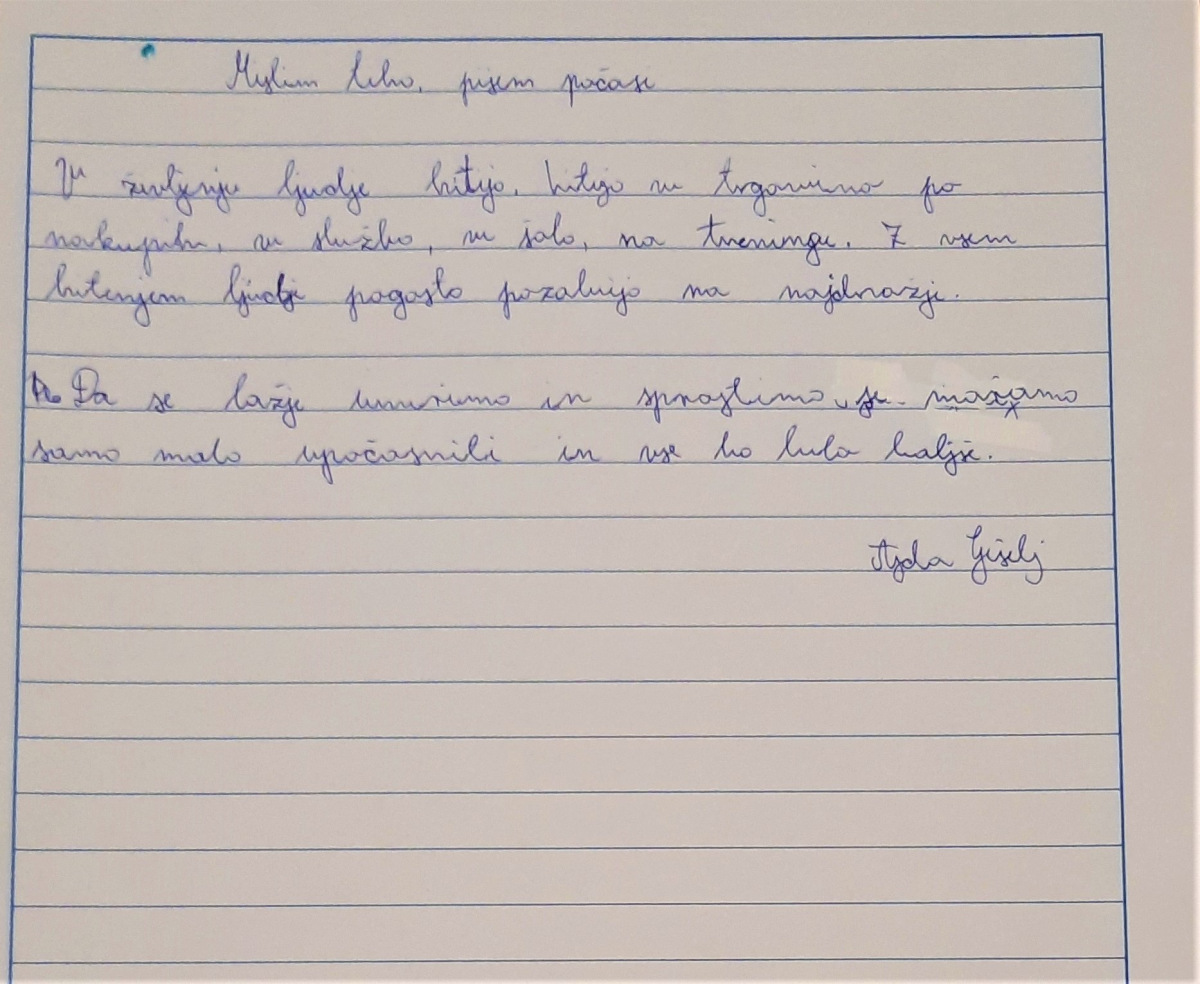 Mislim tiho, pišem počasi
V življenju ljudje hitijo. Hitijo v trgovino po
nakupih, v službo, v šolo, na treninge. Z vsem
hitenjem ljudje pogosto pozabijo na najdražje.
Da se lažje umirimo in sprostimo, se moramo
samo malo upočasniti in vse bo bilo boljše.
Ajda